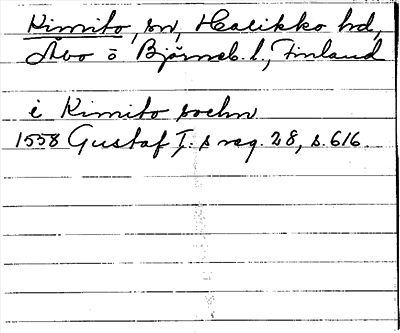 Kimito, sn, Halikko hd,
Åbo o Björneb. l., Finland
i Kimito sochn
1558 Gustaf I:s reg. 28, s. 616.